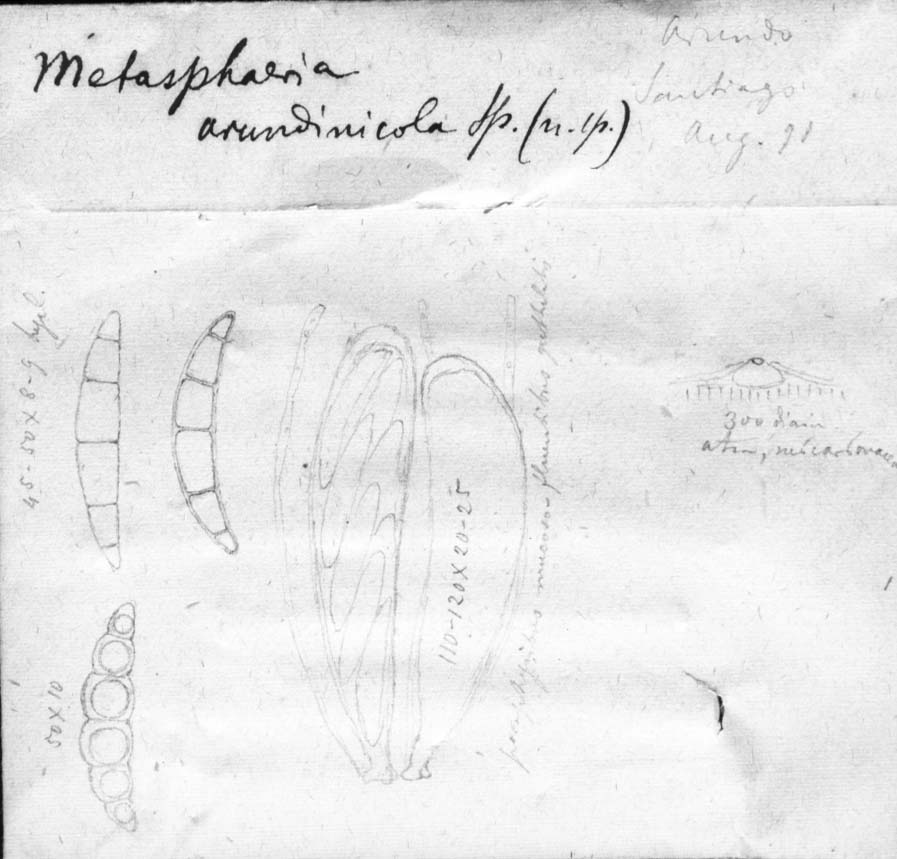 Metasphaeria
arundinicola Sp. (n. sp.)
Arundo
Santiago
Aug. 91
45-50 X 8-9 hyal.
50 X 10
110-120 X 20-25
paraphysibus mucoso-fluentibus
300 diam
atra,